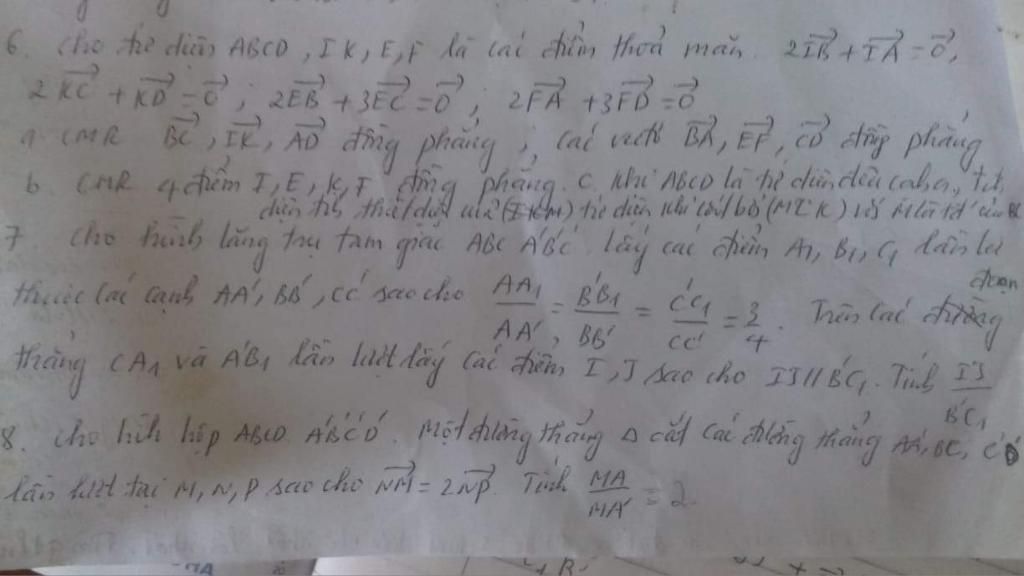 6. Cho tứ diện ABCD, I K, E, F là các điểm thoả mãn. 2IB + IA = 0,
2KC + KD = 0 ; 2EB + 3EC = 0 ; 2FA + 3FD = 0
a. CMR BC, IK, AD đồng phẳng ; các vectơ BA, EF, CD đồng phẳng
b. CMR 4 điểm I, E, K, F đồng phẳng. C. Khi ABCD là tứ diện đều cạnh a, tính
diện tích thiết diện
7 Cho hình lăng trụ tam giác ABC A'B'C' lấy các điểm A1, B1, C1 lần lượt
thuộc các cạnh AA', BB', CC' sao cho AA1/AA' = B'B1/BB' = C'C1/CC' = 3/4. Trên các đoạn
thẳng CA1 và A'B1 lần lượt lấy các điểm I, J sao cho IJ // B'C1. Tính IJ/B'C1
8. Cho hình hộp ABCD. A'B'C'D'. Một đường thẳng Δ cắt các đường thẳng AA', BC, C'D'
lần lượt tại M, N, P sao cho NM = 2NP. Tính MA/MA' = 2